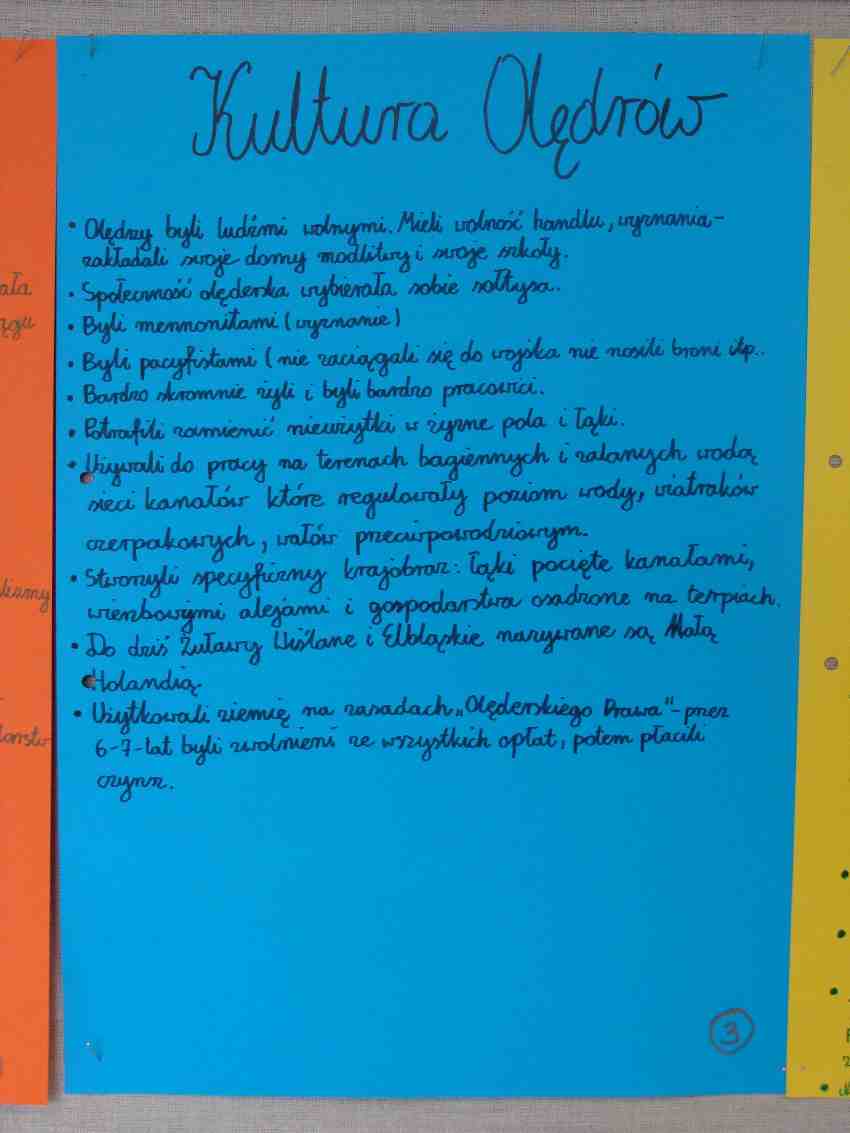 Kultura Olędrów
• Olędrzy byli ludźmi wolnymi. Mieli wolność handlu, wyznania-
zakładali swoje domy modlitwy i swoje szkoły.
• Społeczność olęderska wybierała sobie sołtysa.
• Byli mennonitami (wyznanie)
• Byli pacyfistami ( nie zaciągali się do wojska nie nosili broni itp..
• Bardzo skromnie żyli i byli bardzo pracowici.
• Potrafili zamienić nieużytki w żyzne pola i łąki.
• Używali do pracy na terenach bagiennych i zalanych wodą
sieci kanałów które regulowały poziom wody, wiatraków
czerpakowych, wałów przeciwpowodziowym.
• Stworzyli specyficzny krajobraz: łąki pocięte kanałami,
wierzbowymi alejami i gospodarstwa osadzone na terpiach.
• Do dziś Żuławy Wiślane i Elbląskie nazywane są Małą
Holandią
• Użytkowali ziemię na zasadach „Olęderskiego Prawa"-przez
6-7-lat byli zwolnieni ze wszystkich opłat, potem płacili
czynsz.
3